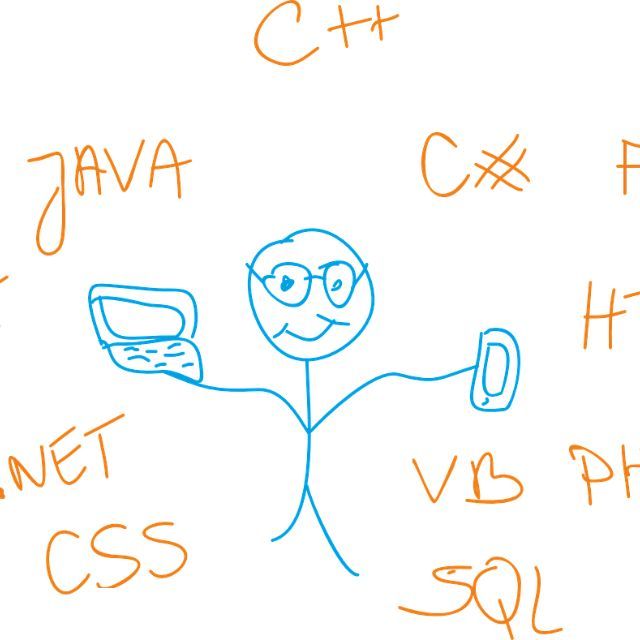 C++
JAVA
C#
HT
.NET
VB
PH
CSS
SQL